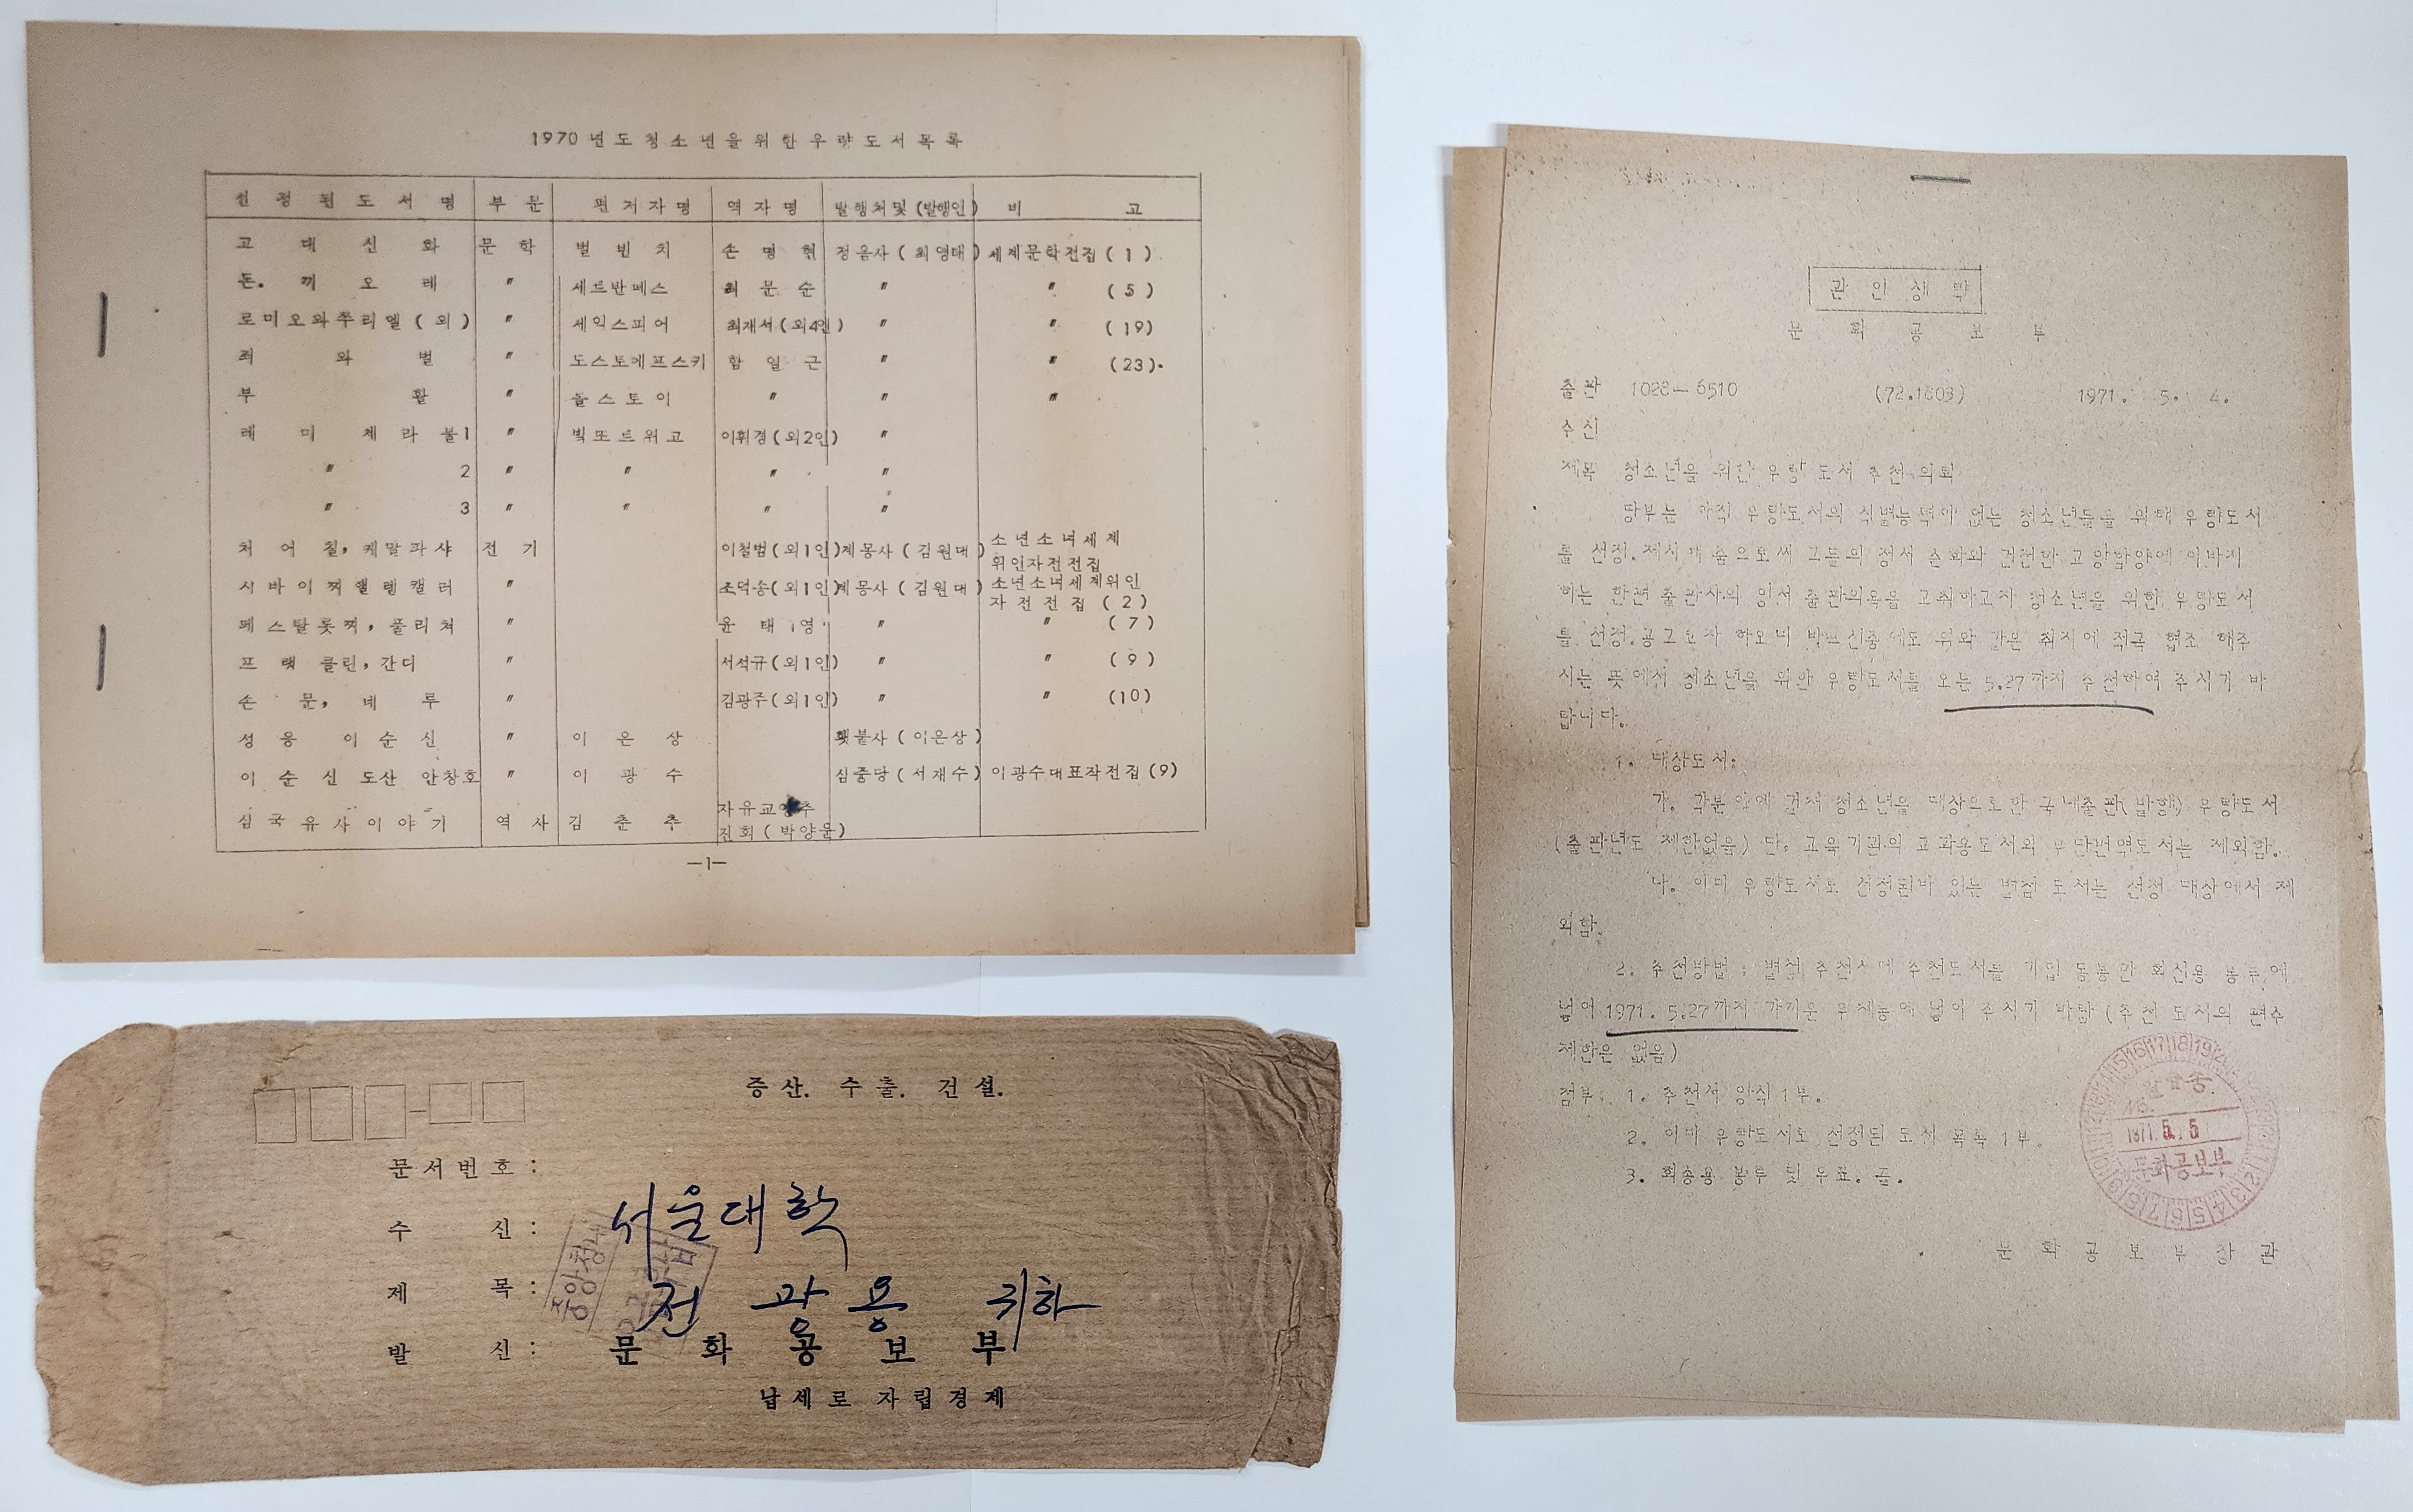 1970 년도청소년을위한우량도서목록
선정된도서명 부문 편저자명 역자명 발행처및(발행인) 비고
고대신화 문학 벌빈치 손명현 정음사(최영태) 세계문학전집(1)
돈.끼오레 〃 세르반테스 최문순 〃 〃 (5)
로미오와쭈리엘(외) 〃 세익스피어 최재서(외4인) 〃 〃 (19)
죄와벌 〃 도스토에프스키 함일근 〃 〃 (23).
부활 〃 톨스토이 〃 〃 〃
레미제라블1 〃 빅또르위고 이휘경(외2인) 〃
〃 2 〃 〃 〃 〃
〃 3 〃 〃 〃 〃
처어칠,케말파샤 전기 이철범(외1인) 계몽사(김원대) 소년소녀세계
위인자전전집
시바이쩌헬렝캘러 〃 조덕송(외1인) 계몽사(김원대) 소년소녀세계위인
자전전집(2)
페스탈롯찌,풀리쳐 〃 윤태영 〃 〃 (7)
프랭클린,간디 〃 서석규(외1인) 〃 〃 (9)
손문,네루 〃 김광주(외1인) 〃 〃 (10)
성웅이순신 〃 이은상 횃불사(이은상)
이순신도산안창호 〃 이광수 삼중당(서재수) 이광수대표작전집(9)
삼국유사이야기 역사 김춘추 자유교양추
진회(박양운)
—1—
증산. 수출. 건설.
문서번호:
수신: 서울대학
제목: 전광용 귀하
발신: 문화공보부
납세로 자립경제
관인생략
문화공보부
출판 1028-6510 (72.1803) 1971. 5. 4.
수신
제목 청소년을 위한 우량 도서 추천 의뢰
당부는 아직 우량도서의 식별능력이 없는 청소년들을 위해 우량도서
를 선정.제시해 줌으로써 그들의 정서 순화와 건전한 교양함양에 이바지
하는 한편 출판사의 양서 출판의욕을 고취하고자 청소년을 위한 우량도서
를 선정.공고코자 하오니 바쁘신중에도 위와 같은 취지에 적극 협조 해주
시는 뜻에서 청소년을 위한 우량도서를 오는 5.27까지 추천하여 주시기 바
랍니다.
1. 대상도서:
가. 각분야에 걸쳐 청소년을 대상으로한 국내출판(발행) 우량도서
(출판년도 제한없음) 단. 교육기관의 교과용도서와 무단번역도서는 제외함.
나. 이미 우량도서로 선정된바 있는 별첨 도서는 선정 대상에서 제
외함.
2. 추천방법 : 별첨 추천서에 추천도서를 기입 동봉한 회신용 봉투에
넣어 1971. 5.27까지 가까운 우체통에 넣어 주시기 바람 (추천 도서의 편수
제한은 없음)
첨부: 1. 추천서 양식 1부.
2. 이미 우량도서로 선정된 도서 목록 1부.
3. 회송용 봉투 및 우표. 끝.
1971.5.5
문화공보부
문화공보부장관